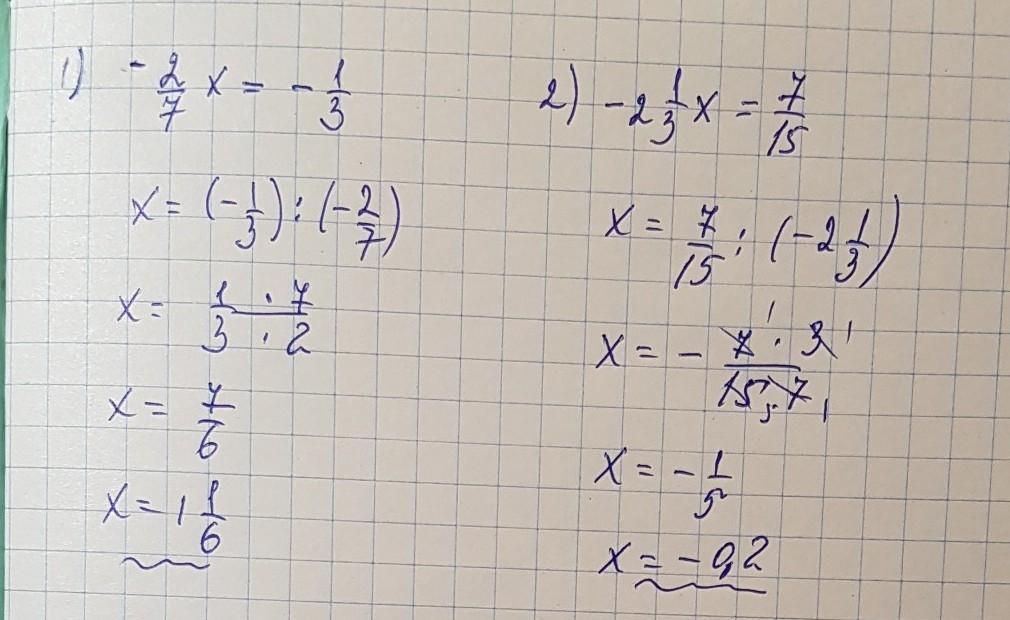 1) -2/7 x = -1/3
x = (-1/3) : (-2/7)
x = 1 · 7 / 3 · 2
x = 7/6
x = 1 1/6
2) -2 1/3 x = 7/15
x = 7/15 : (-2 1/3)
x = - 7 1 · 3 1 / 15 5 · 7 1
x = - 1/5
x = -0,2